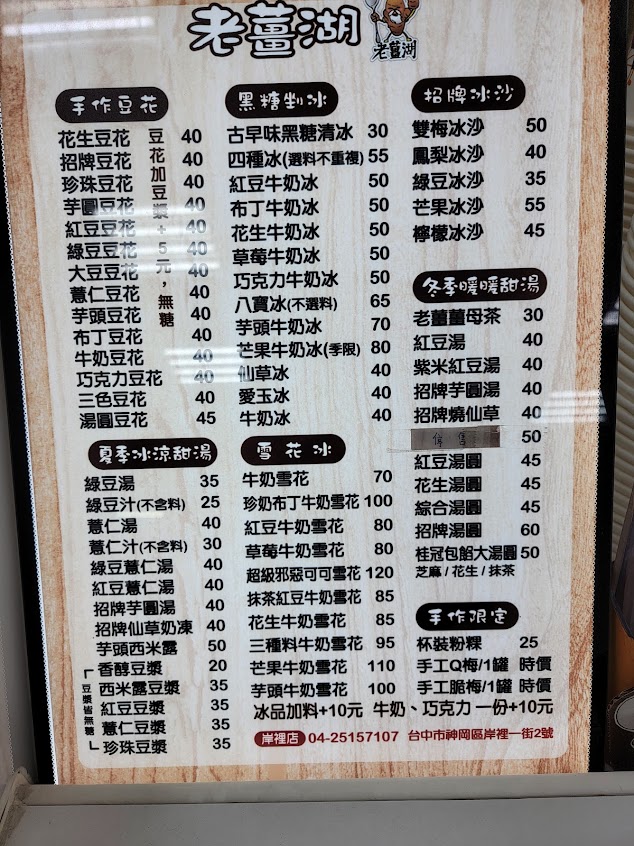 老薑湖
老薑湖
手作豆花
花生豆花 40
招牌豆花 40
珍珠豆花 40
芋圓豆花 40
紅豆豆花 40
綠豆豆花 40
大豆豆花 40
薏仁豆花 40
芋頭豆花 40
布丁豆花 40
牛奶豆花 40
巧克力豆花 40
三色豆花 40
湯圓豆花 45
豆花加豆漿+5元，無糖
夏季冰涼甜湯
綠豆湯 35
綠豆汁(不含料) 25
薏仁湯 40
薏仁汁(不含料) 30
綠豆薏仁湯 40
紅豆薏仁湯 40
招牌芋圓湯 40
招牌仙草奶凍 40
芋頭西米露 50
香醇豆漿 20
西米露豆漿 35
紅豆豆漿 35
薏仁豆漿 35
珍珠豆漿 35
豆漿皆無糖
黑糖剉冰
古早味黑糖清冰 30
四種冰(選料不重複) 55
紅豆牛奶冰 50
布丁牛奶冰 50
花生牛奶冰 50
草莓牛奶冰 50
巧克力牛奶冰 50
八寶冰(不選料) 65
芋頭牛奶冰 70
芒果牛奶冰(季限) 80
仙草冰 40
愛玉冰 40
牛奶冰 40
雪花冰
牛奶雪花 70
珍奶布丁牛奶雪花 100
紅豆牛奶雪花 80
草莓牛奶雪花 80
超級邪惡可可雪花 120
抹茶紅豆牛奶雪花 85
花生牛奶雪花 85
三種料牛奶雪花 95
芒果牛奶雪花 110
芋頭牛奶雪花 100
冰品加料+10元 牛奶、巧克力 一份+10元
招牌冰沙
雙梅冰沙 50
鳳梨冰沙 40
綠豆冰沙 35
芒果冰沙 55
檸檬冰沙 45
冬季暖暖甜湯
老薑薑母茶 30
紅豆湯 40
紫米紅豆湯 40
招牌芋圓湯 40
招牌燒仙草 40
停售 50
紅豆湯圓 45
花生湯圓 45
綜合湯圓 45
招牌湯圓 60
桂冠包餡大湯圓 50
芝麻/花生/抹茶
手作限定
杯裝粉粿 25
手工Q梅/1罐 時價
手工脆梅/1罐 時價
岸裡店 04-25157107 台中市神岡區岸裡一街2號